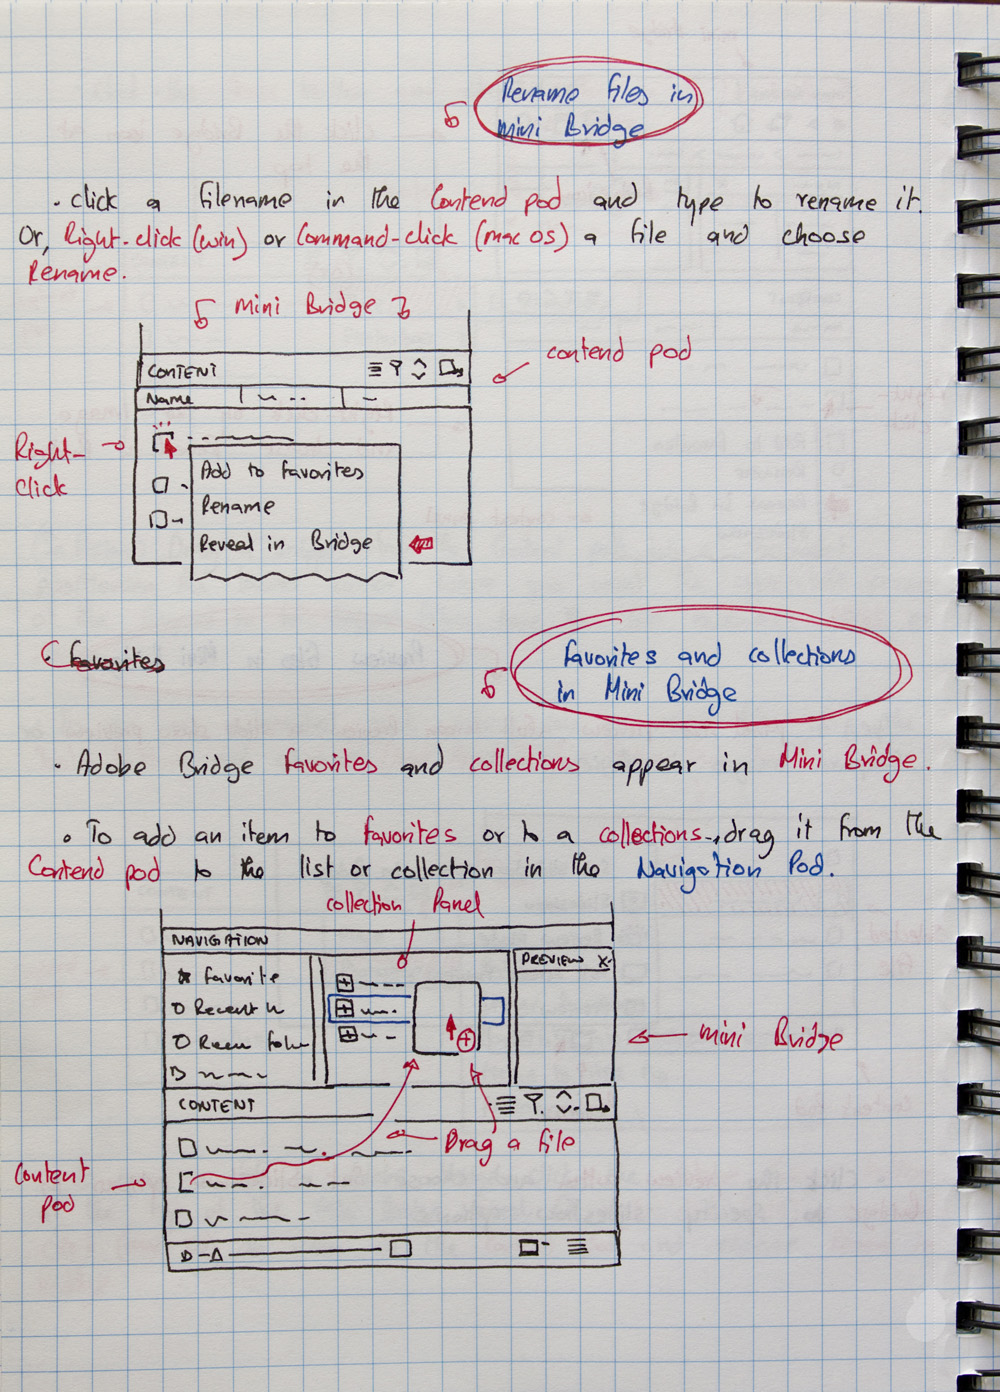 Rename files in
mini Bridge
. click a filename in the Contend pod and type to rename it.
Or, Right-click (win) or Command-click (mac os) a file and choose
Rename.
mini Bridge
CONTENT
contend pod
Name
Right-
click
Add to favorites
Rename
Reveal in Bridge
Favorites
Favorites and collections
in Mini Bridge
. Adobe Bridge favorites and collections appear in Mini Bridge.
. To add an item to favorites or to a collections, drag it from the
Contend pod to the list or collection in the Navigation Pod.
collection Panel
NAVIGATION
PREVIEW X
Favorite
Recent
mini Bridge
CONTENT
Drag a file
Content
pod